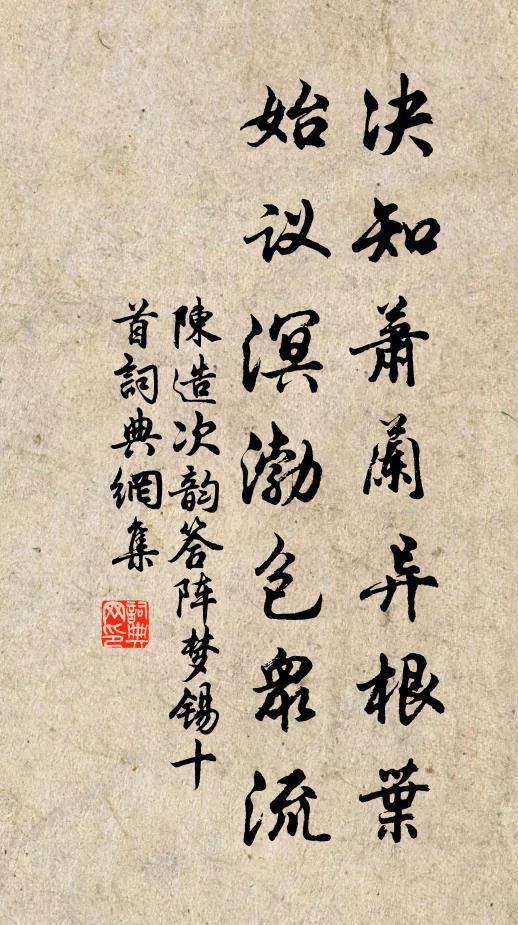 决知蕭蘭异根葉
始议溟渤包衆流
陳造次韵答阵梦锡十
首詞典網集
詞典网印